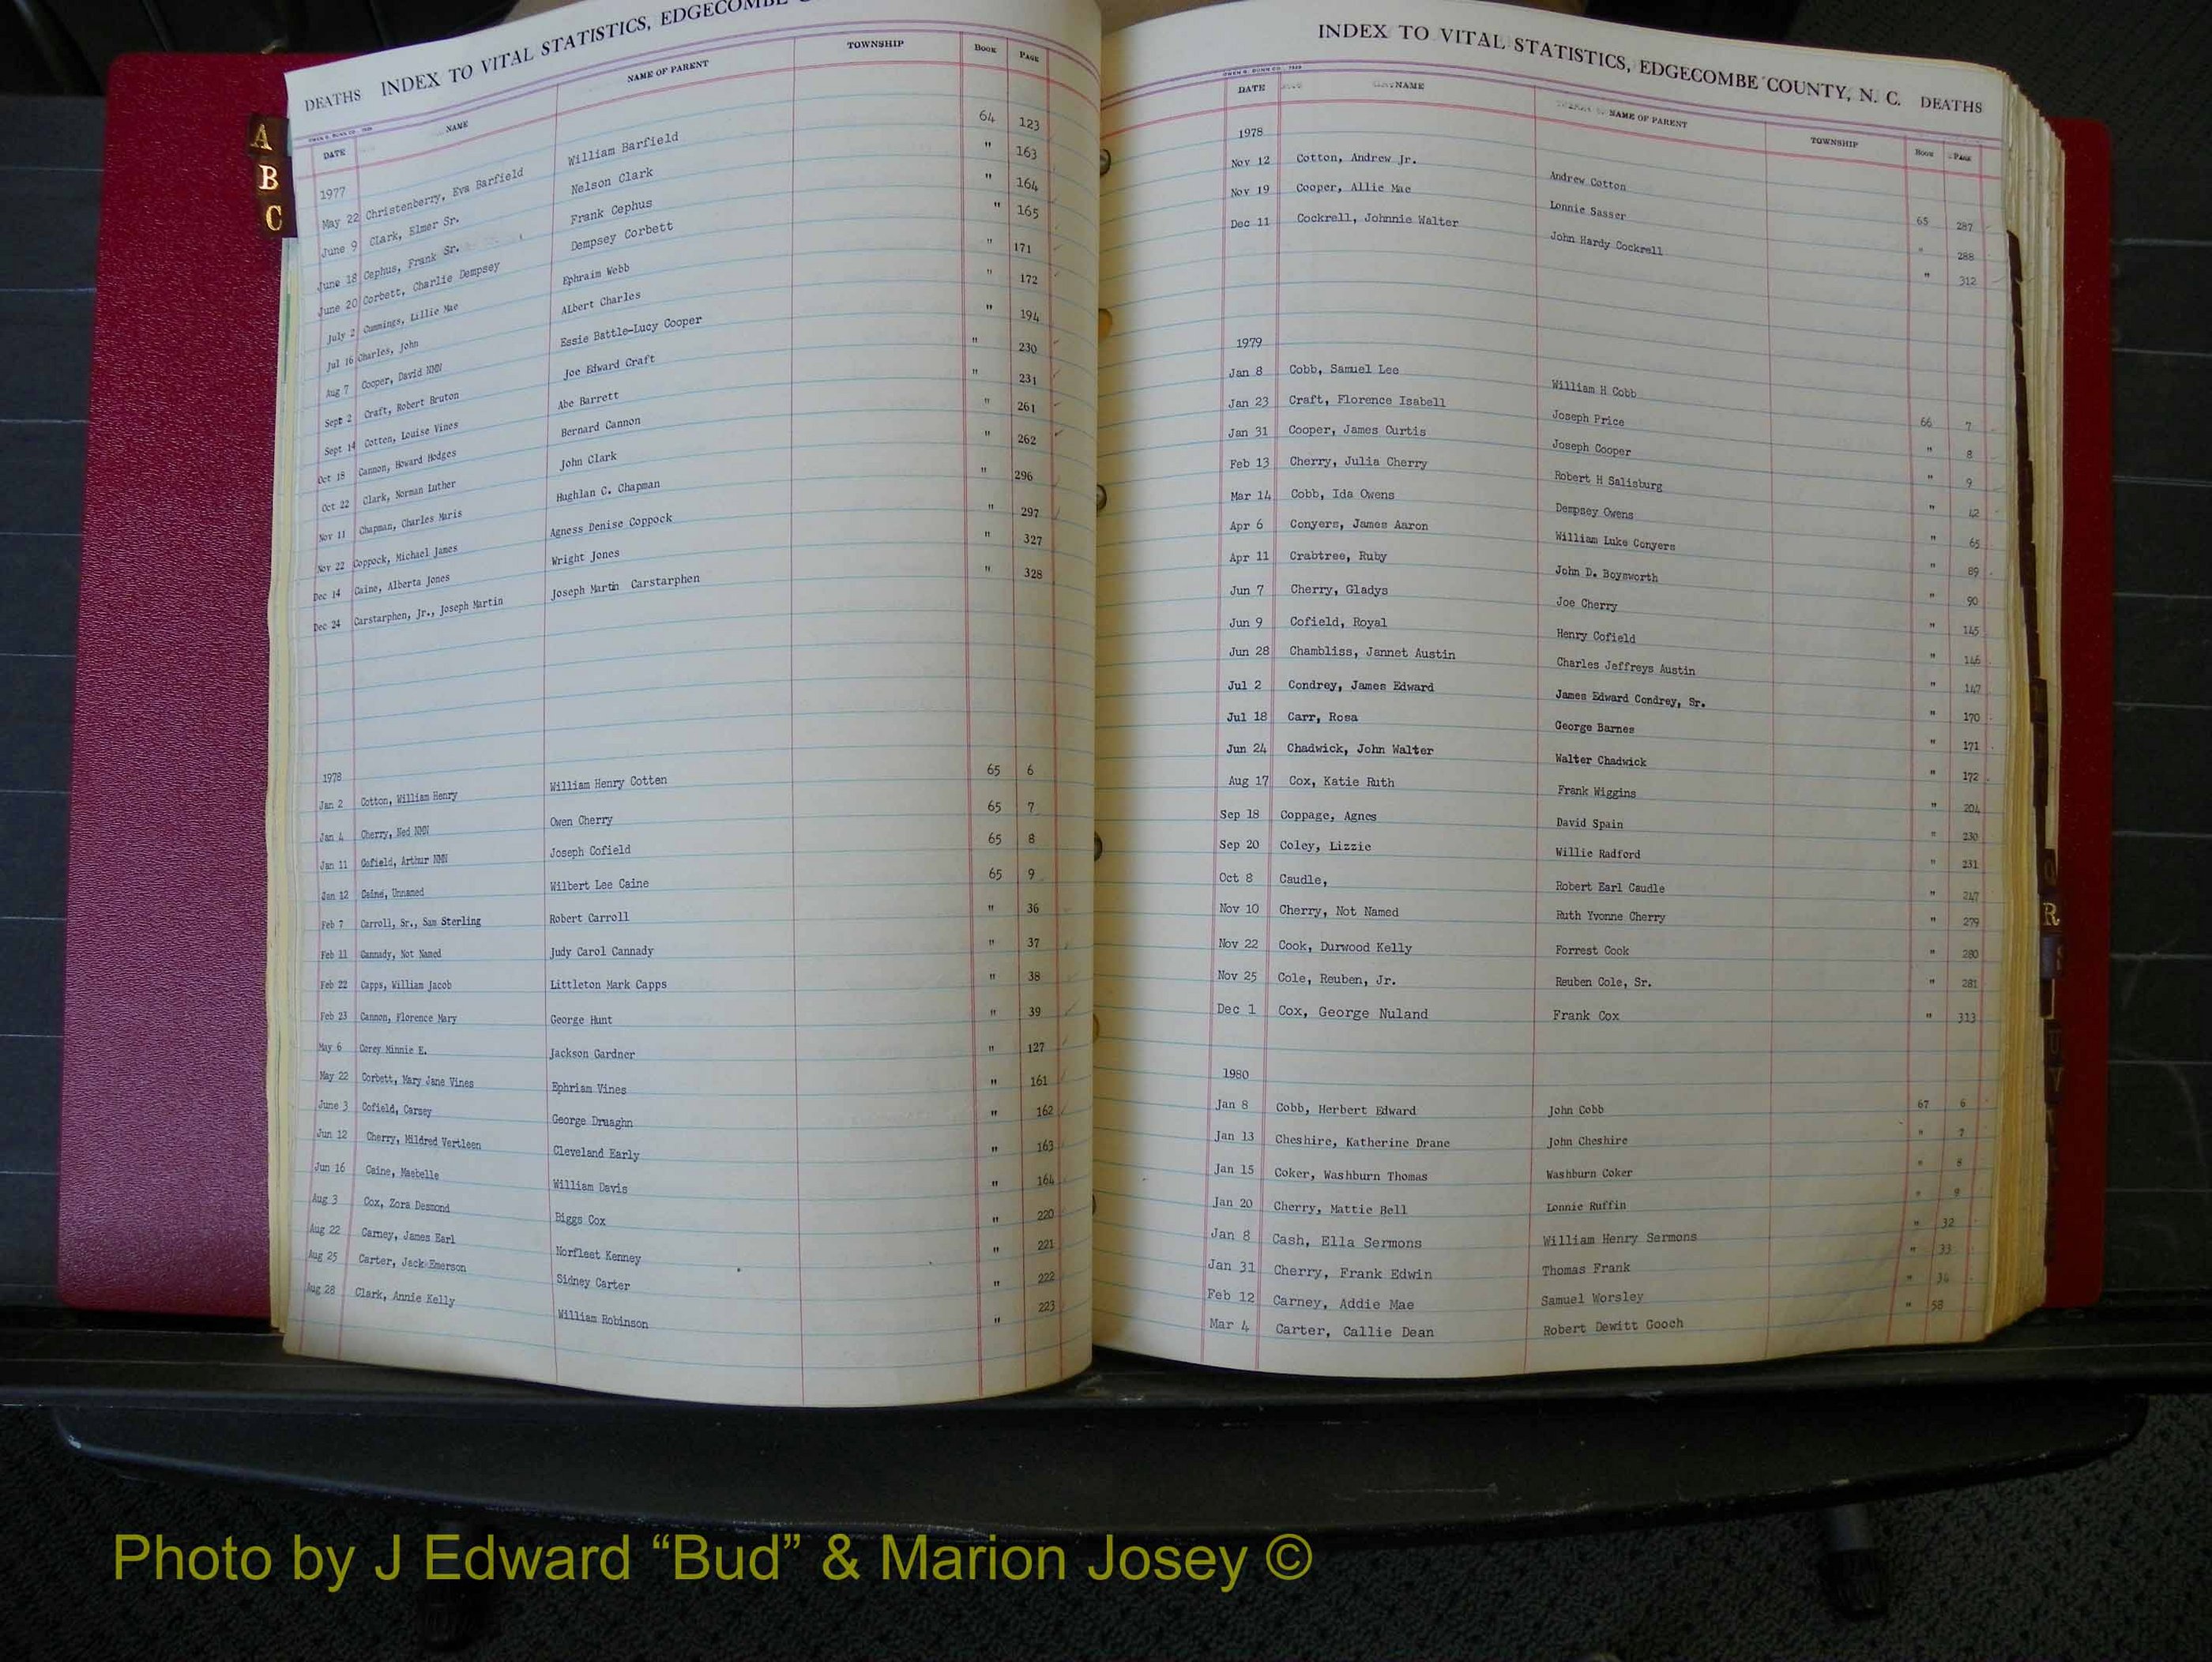 DEATHS INDEX TO VITAL STATISTICS, EDGECOMBE
DATE NAME NAME OF PARENT TOWNSHIP BOOK PAGE
1977
May 22 Christenberry, Eva Barfield William Barfield 64 123
June 9 CLark, Elmer Sr. Nelson Clark " 163
June 18 Cephus, Frank Sr. Frank Cephus " 164
June 20 Corbett, Charlie Dempsey Dempsey Corbett " 165
July 2 Cummings, Lillie Mae Ephraim Webb " 171
Jul 16 Charles, John ALbert Charles " 172
Aug 7 Cooper, David NMN Essie Battle-Lucy Cooper " 194
Sept 2 Craft, Robert Bruton Joe Edward Craft " 230
Sept 14 Cotten, Louise Vines Abe Barrett " 231
Oct 18 Cannon, Howard Hodges Bernard Cannon " 261
Oct 22 Clark, Norman Luther John Clark " 262
Nov 11 Chapman, Charles Maris Hughlan C. Chapman " 296
Nov 22 Coppock, Michael James Agness Denise Coppock " 297
Dec 14 Caine, Alberta Jones Wright Jones " 327
Dec 24 Carstarphen, Jr., Joseph Martin Joseph Martin Carstarphen " 328
1978
Jan 2 Cotton, William Henry William Henry Cotten 65 6
Jan 4 Cherry, Ned NMN Owen Cherry 65 7
Jan 11 Cofield, Arthur NMN Joseph Cofield 65 8
Jan 12 Caine, Unnamed Wilbert Lee Caine 65 9
Feb 7 Carroll, Sr., Sam Sterling Robert Carroll " 36
Feb 11 Cannady, Not Named Judy Carol Cannady " 37
Feb 22 Capps, William Jacob Littleton Mark Capps " 38
Feb 23 Cannon, Florence Mary George Hunt " 39
May 6 Corey Minnie E. Jackson Gardner " 127
May 22 Corbett, Mary Jane Vines Ephriam Vines " 161
June 3 Cofield, Carsey George Draughn " 162
Jun 12 Cherry, Mildred Vertleen Cleveland Early " 163
Jun 16 Caine, Maebelle William Davis " 164
Aug 3 Cox, Zora Desmond Biggs Cox " 220
Aug 22 Carney, James Earl Norfleet Kenney " 221
Aug 25 Carter, Jack Emerson Sidney Carter " 222
Aug 28 Clark, Annie Kelly William Robinson " 223
INDEX TO VITAL STATISTICS, EDGECOMBE COUNTY, N. C. DEATHS
DATE NAME NAME OF PARENT TOWNSHIP BOOK PAGE
1978
Nov 12 Cotton, Andrew Jr. Andrew Cotton 65 287
Nov 19 Cooper, Allie Mae Lonnie Sasser " 288
Dec 11 Cockrell, Johnnie Walter John Hardy Cockrell " 312
1979
Jan 8 Cobb, Samuel Lee William H Cobb 66 7
Jan 23 Craft, Florence Isabell Joseph Price " 8
Jan 31 Cooper, James Curtis Joseph Cooper " 9
Feb 13 Cherry, Julia Cherry Robert H Salisburg " 42
Mar 14 Cobb, Ida Owens Dempsey Owens " 65
Apr 6 Conyers, James Aaron William Luke Conyers " 89
Apr 11 Crabtree, Ruby John D. Boysworth " 90
Jun 7 Cherry, Gladys Joe Cherry " 145
Jun 9 Cofield, Royal Henry Cofield " 146
Jun 28 Chambliss, Jannet Austin Charles Jeffreys Austin " 147
Jul 2 Condrey, James Edward James Edward Condrey, Sr. " 170
Jul 18 Carr, Rosa George Barnes " 171
Jun 24 Chadwick, John Walter Walter Chadwick " 172
Aug 17 Cox, Katie Ruth Frank Wiggins " 204
Sep 18 Coppage, Agnes David Spain " 230
Sep 20 Coley, Lizzie Willie Radford " 231
Oct 8 Caudle, Robert Earl Caudle " 247
Nov 10 Cherry, Not Named Ruth Yvonne Cherry " 279
Nov 22 Cook, Durwood Kelly Forrest Cook " 280
Nov 25 Cole, Reuben, Jr. Reuben Cole, Sr. " 281
Dec 1 Cox, George Nuland Frank Cox " 313
1980
Jan 8 Cobb, Herbert Edward John Cobb 67 6
Jan 13 Cheshire, Katherine Drane John Cheshire " 7
Jan 15 Coker, Washburn Thomas Washburn Coker " 8
Jan 20 Cherry, Mattie Bell Lonnie Ruffin " 9
Jan 8 Cash, Ella Sermons William Henry Sermons " 32
Jan 31 Cherry, Frank Edwin Thomas Frank " 33
Feb 12 Carney, Addie Mae Samuel Worsley " 34
Mar 4 Carter, Callie Dean Robert Dewitt Gooch " 58
A
B
C
R
Photo by J Edward “Bud” & Marion Josey ©